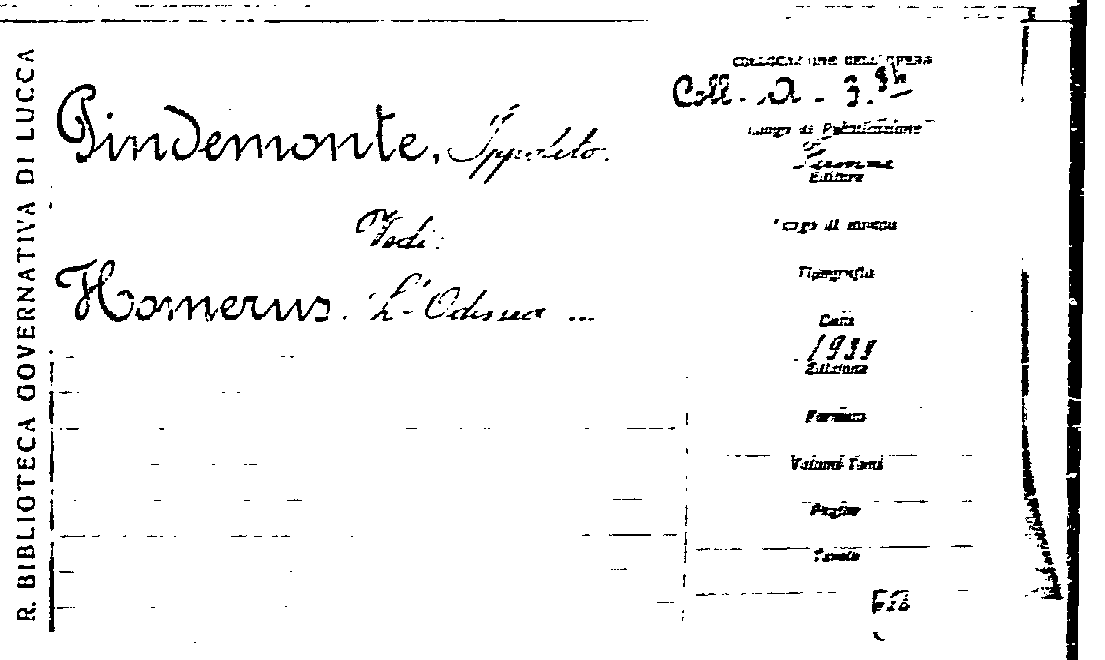 R. BIBLIOTECA GOVERNATIVA DI LUCCA
Pindemonte, Ippolito.
Vedi:
Homerus. L'Odissea ...
COLLOCAZIONE DELL'OPERA
Coll. A - 3.
Luogo di Pubblicazione
Firenze
Editore
Luogo di stampa
Tipografia
Data
Edizione
Formato
Volumi-Tomi
Pagine
Tavole